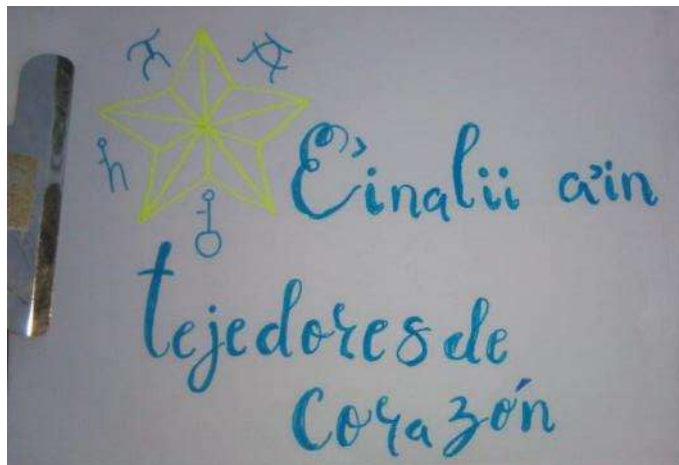 E'inalii a'in
tejedores de
corazón